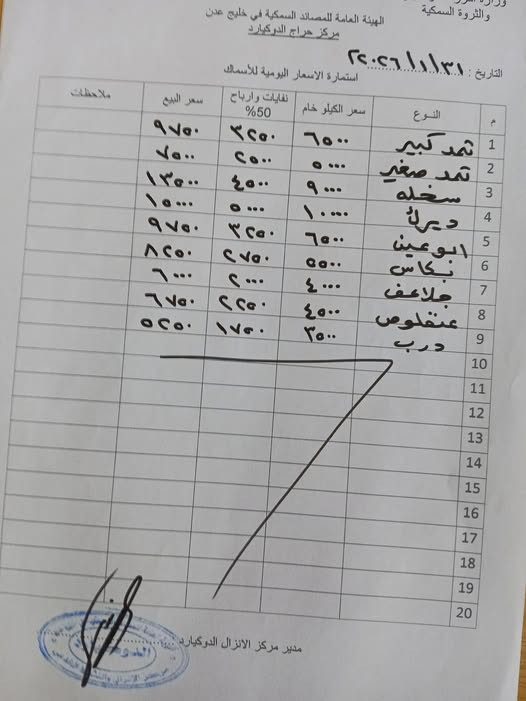 والثروة السمكية
الهيئة العامة للمصائد السمكية في خليج عدن
مركز حراج الدوكيارد
التاريخ : ٣١/١/٢٠٢٦
استمارة الاسعار اليومية للأسماك
م النوع سعر الكيلو خام نفايات وارباح 50% سعر البيع ملاحظات
1 ثمد كبير ٦٥٠٠ ٣٢٥٠ ٩٧٥٠
2 ثمد صغير ٥٠٠٠ ٢٥٠٠ ٧٥٠٠
3 سخله ٩٠٠٠ ٤٥٠٠ ١٣٥٠٠
4 ديرك ١٠٠٠٠ ٥٠٠٠ ١٥٠٠٠
5 ابو عين ٦٥٠٠ ٣٢٥٠ ٩٧٥٠
6 نكاس ٥٥٠٠ ٢٧٥٠ ٨٢٥٠
7 جلاعف ٤٠٠٠ ٢٠٠٠ ٦٠٠٠
8 عنقلوص ٤٥٠٠ ٢٢٥٠ ٦٧٥٠
9 درب ٣٥٠٠ ١٧٥٠ ٥٢٥٠
10
11
12
13
14
15
16
17
18
19
20
مدير مركز الانزال الدوكيارد